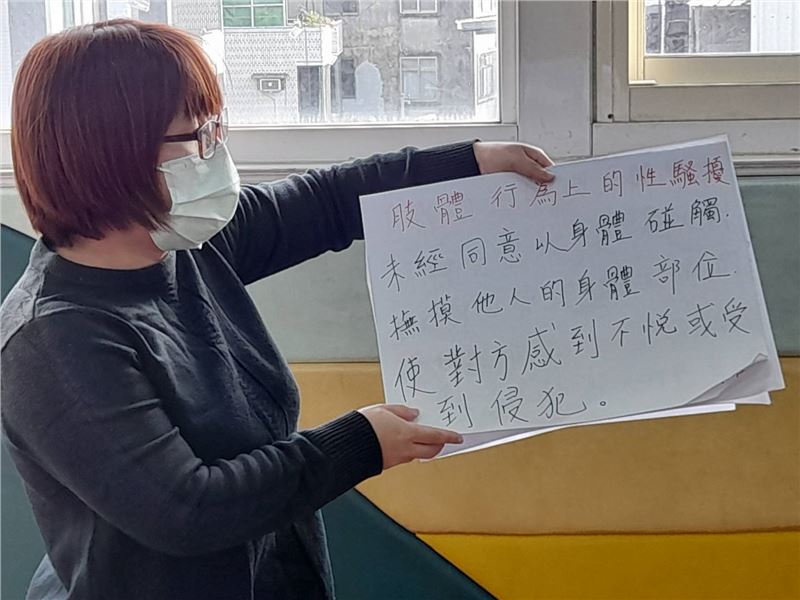 肢體行為上的性騷擾
未經同意以身體碰觸.
撫摸他人的身體部位.
使對方感到不悅或受
到侵犯。